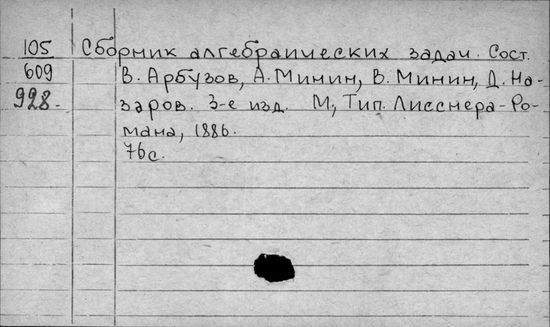 105 Сборник алгебраических задач. Сост.
609 В. Арбузов, А. Минин, В. Минин, Д. На-
928. заров. 3-е изд. М., Тип. Лисснера-Ро-
мана, 1886.
76 с.